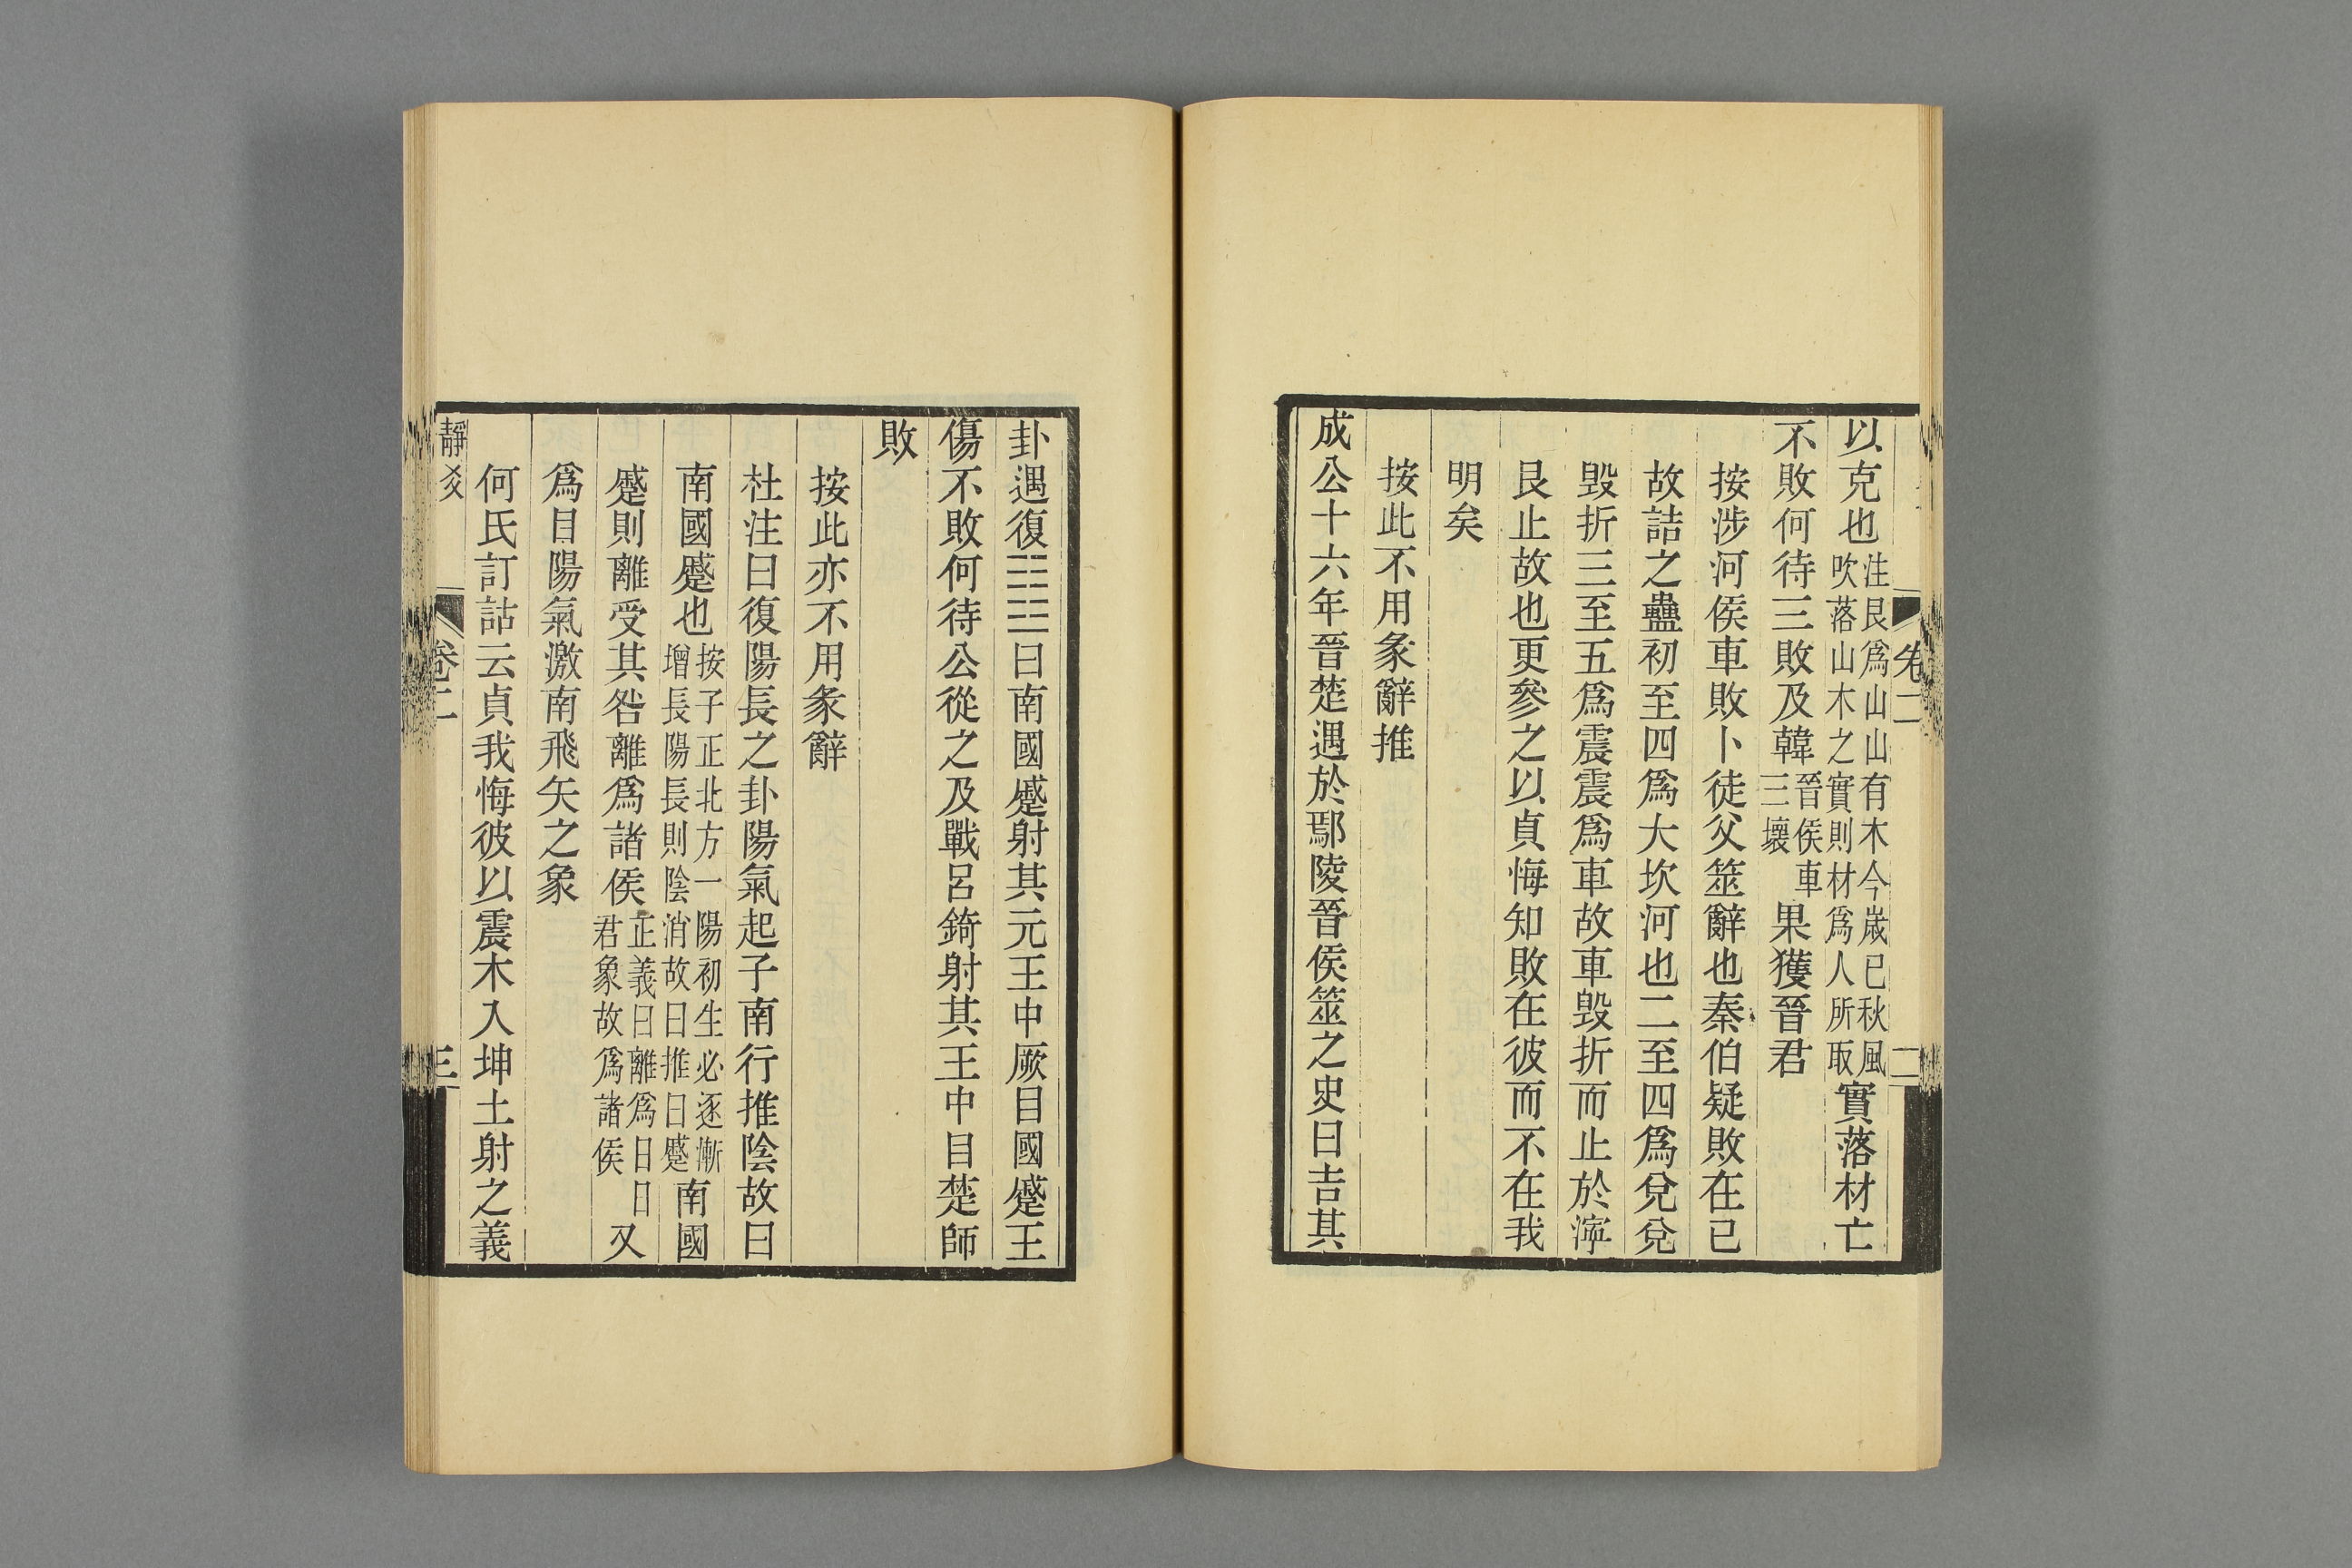 以克也注艮爲山山有木今歲已秋風吹落山木之實則材爲人所取實落材亡
不敗何待三敗及韓晉侯車三壞果獲晉君
按涉河侯車敗卜徒父筮辭也秦伯疑敗在已
故詰之蠱初至四爲大坎河也二至四爲兌兌
毀折三至五爲震震爲車故車毀折而止於濘
艮止故也更參之以貞悔知敗在彼而不在我
明矣
按此不用彖辭推
成公十六年晉楚遇於鄢陵晉侯筮之史曰吉其
卷二
二
卦遇復䷗曰南國蹙射其元王中厥目國蹙王
傷不敗何待公從之及戰呂錡射其王中目楚師
敗
按此亦不用彖辭
杜注曰復陽長之卦陽氣起子南行推陰故曰
南國蹙也按子正北方一陽初生必逐漸增長陽長則陰消故曰推曰蹙南國
蹙則離受其咎離爲諸侯正義曰離爲日日君象故爲諸侯又
爲目陽氣激南飛矢之象
何氏訂詁云貞我悔彼以震木入坤土射之義
靜爻
卷二
三